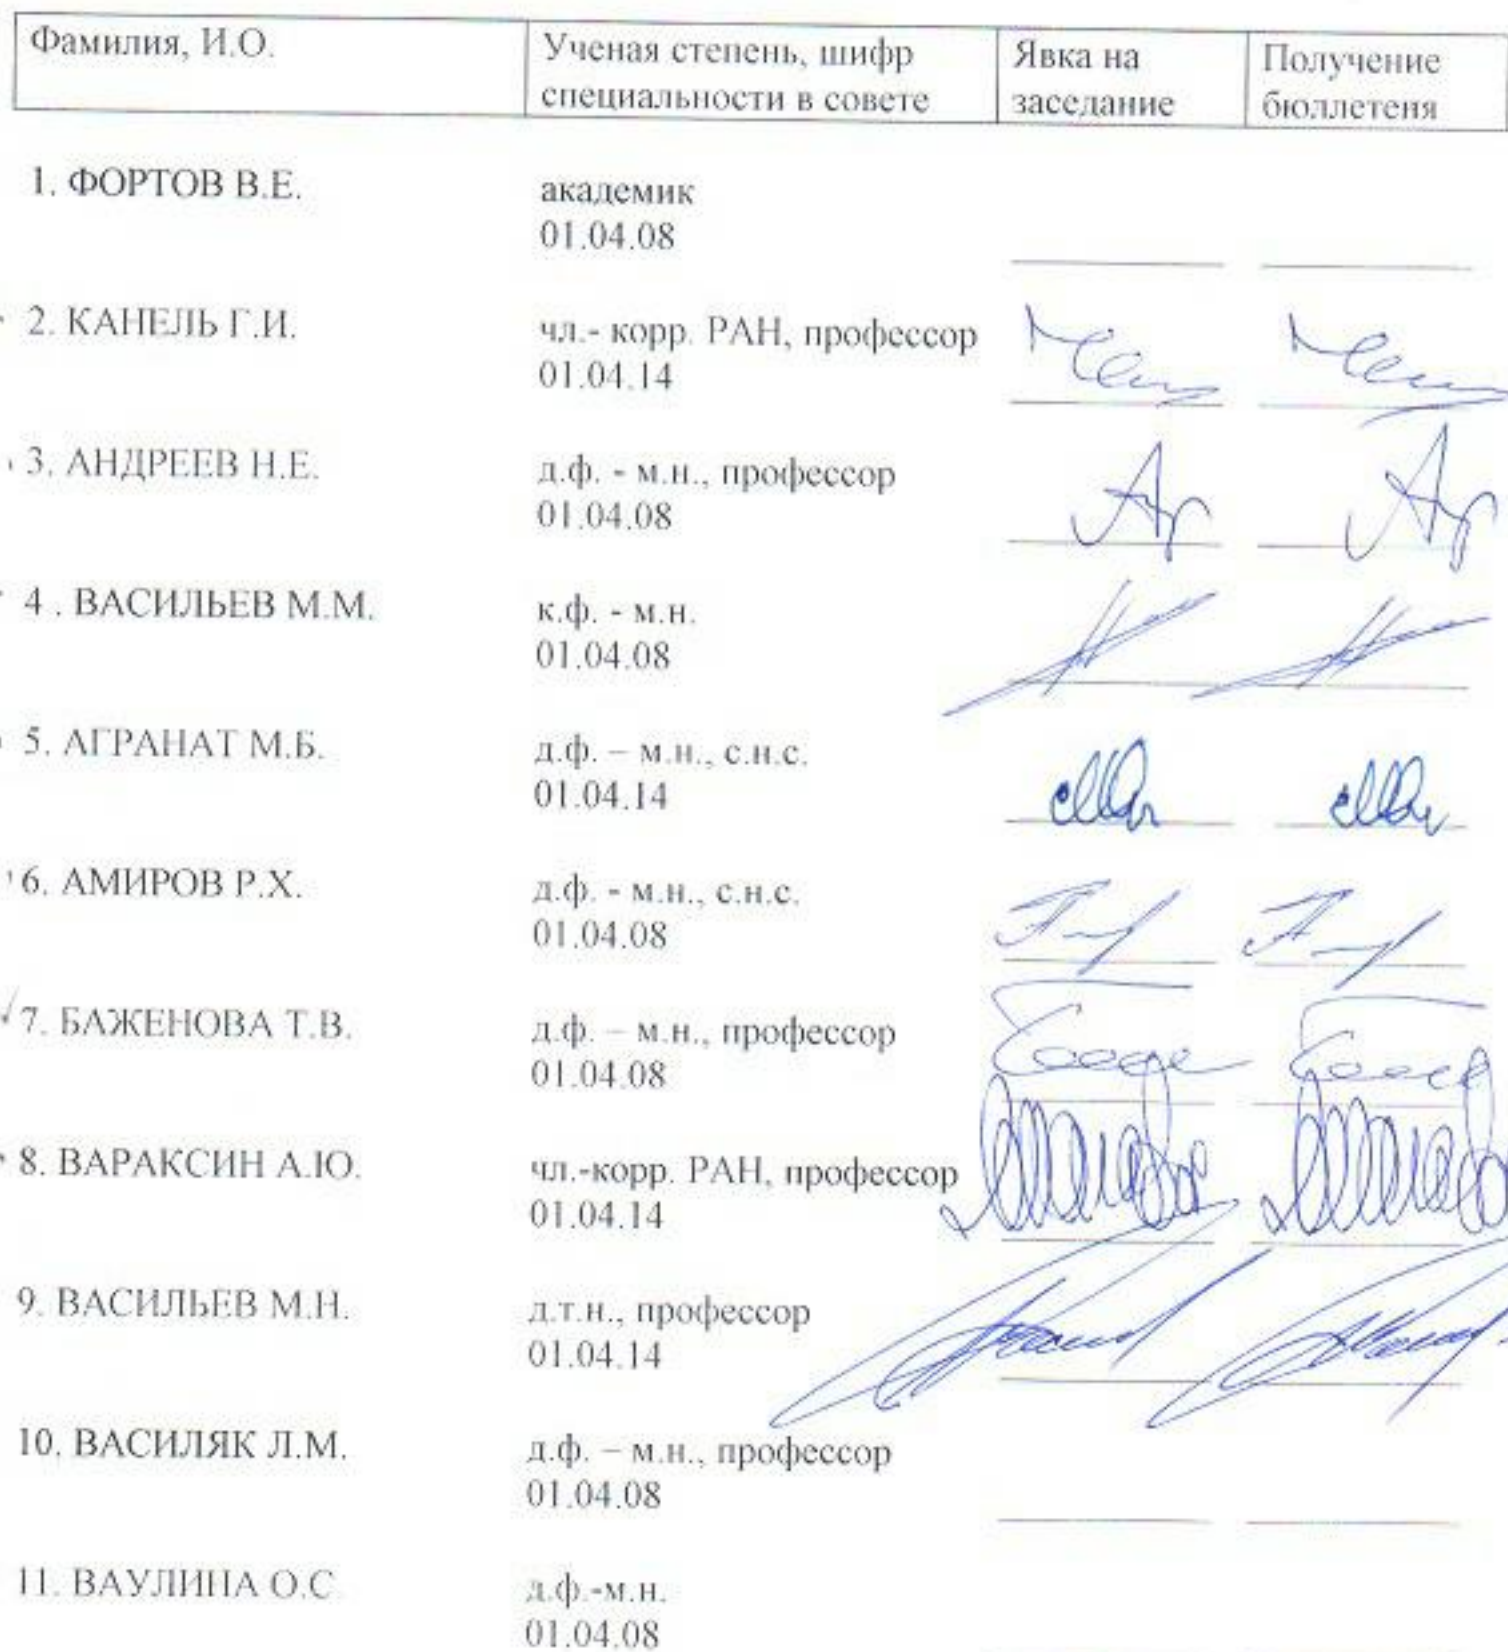 Фамилия, И.О.
Ученая степень, шифр
специальности в совете
Явка на
заседание
Получение
бюллетеня
1. ФОРТОВ В.Е.
академик
01.04.08
2. КАНЕЛЬ Г.И.
чл.- корр. РАН, профессор
01.04.14
3. АНДРЕЕВ Н.Е.
д.ф. - м.н., профессор
01.04.08
4 . ВАСИЛЬЕВ М.М.
к.ф. - м.н.
01.04.08
5. АГРАНАТ М.Б.
д.ф. – м.н., с.н.с.
01.04.14
6. АМИРОВ Р.Х.
д.ф. - м.н., с.н.с.
01.04.08
7. БАЖЕНОВА Т.В.
д.ф. – м.н., профессор
01.04.08
8. ВАРАКСИН А.Ю.
чл.-корр. РАН, профессор
01.04.14
9. ВАСИЛЬЕВ М.Н.
д.т.н., профессор
01.04.14
10. ВАСИЛЯК Л.М.
д.ф. – м.н., профессор
01.04.08
11. ВАУЛИНА О.С
д.ф.-м.н.
01.04.08